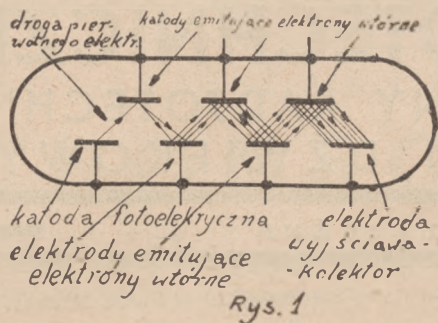 droga pier-
wotnego elektr.
katody emitujące elektrony wtórne
katoda fotoelekryczna
elektrody emitujące
elektrony wtórne
elektroda
wyjściawa-
-kolektor
Rys. 1